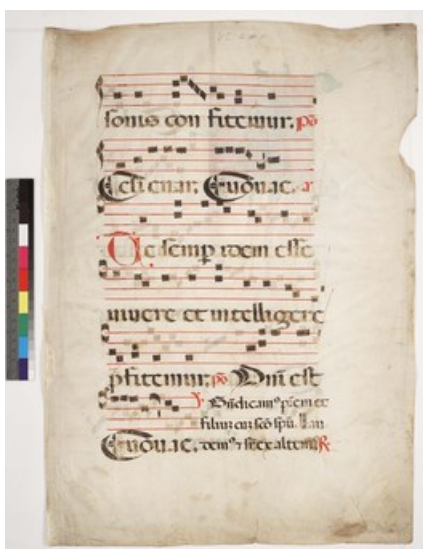 sonis con fitemur. ps
Celi enar. Euouae. a
Te semp idem esse
uiuere et intelligere
pfitemur. ps Dni est
V Bndicam⁹ prem et
filium cu sco spu. Lau
Euouae. dem⁹ & supexaltem⁹ R